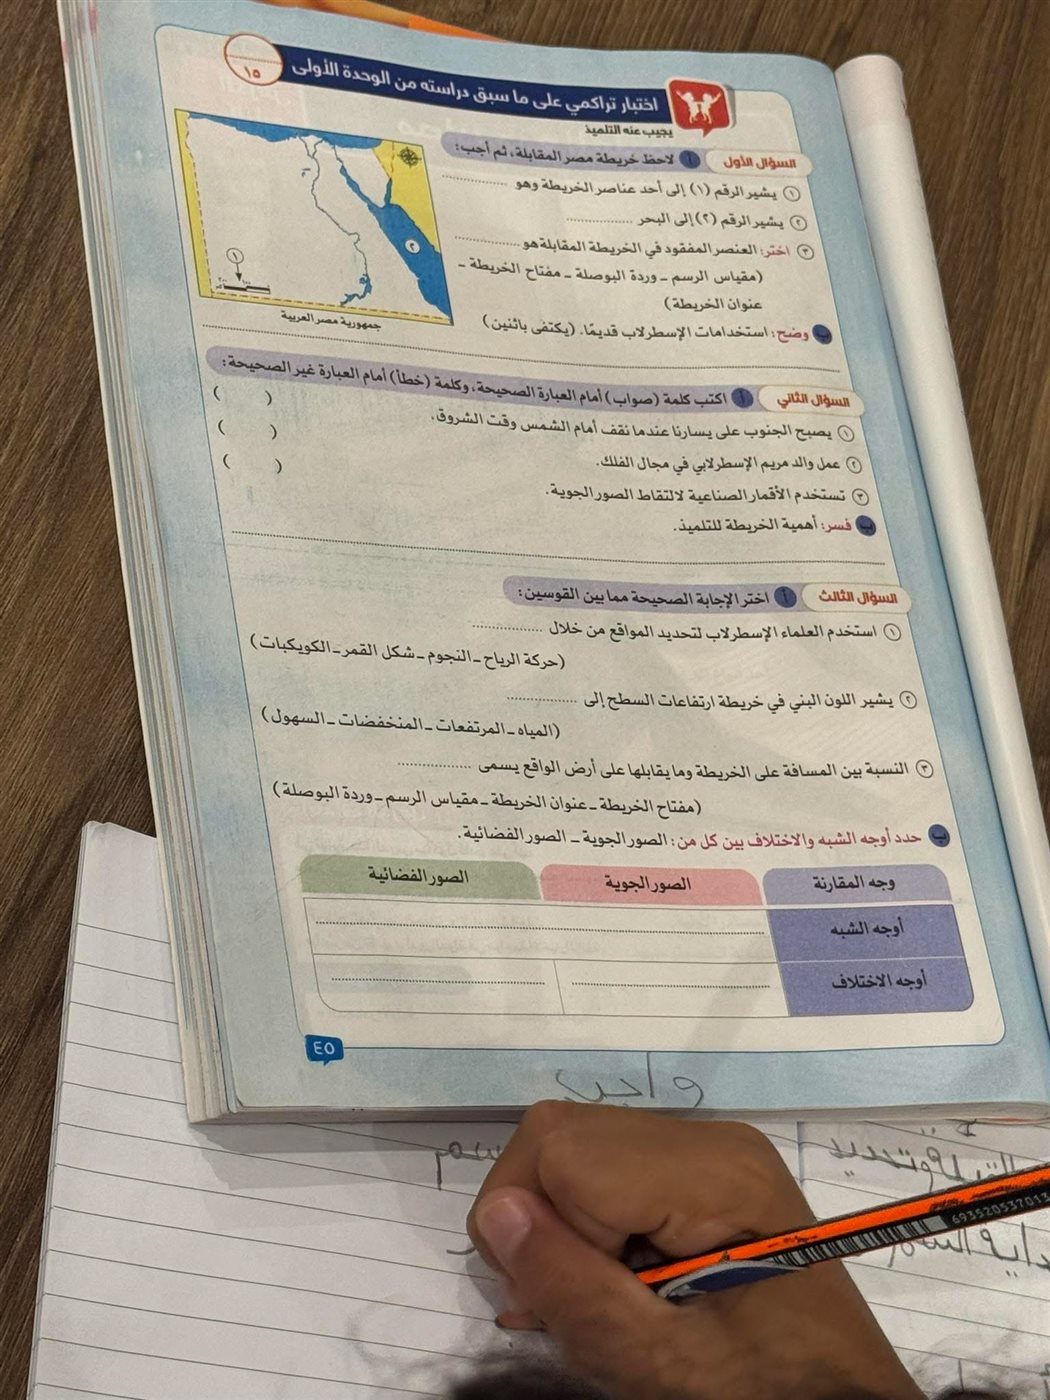 اختبار تراكمي على ما سبق دراسته من الوحدة الأولى
١٥
يجيب عنه التلميذ
السؤال الأول أ لاحظ خريطة مصر المقابلة، ثم أجب:
١ يشير الرقم (١) إلى أحد عناصر الخريطة وهو ..............
٢ يشير الرقم (٢) إلى البحر ..............
٣ اختر: العنصر المفقود في الخريطة المقابلة هو ..............
(مقياس الرسم ـ وردة البوصلة ـ مفتاح الخريطة ـ
عنوان الخريطة)
١
٢
جمهورية مصر العربية
ب وضح: استخدامات الإسطرلاب قديمًا. (يكتفى باثنين)
السؤال الثاني أ اكتب كلمة (صواب) أمام العبارة الصحيحة، وكلمة (خطأ) أمام العبارة غير الصحيحة:
١ يصبح الجنوب على يسارنا عندما نقف أمام الشمس وقت الشروق. ( )
٢ عمل والد مريم الإسطرلابي في مجال الفلك. ( )
٣ تستخدم الأقمار الصناعية لالتقاط الصور الجوية. ( )
ب فسر: أهمية الخريطة للتلميذ.
السؤال الثالث أ اختر الإجابة الصحيحة مما بين القوسين:
١ استخدم العلماء الإسطرلاب لتحديد المواقع من خلال ..............
(حركة الرياح ـ النجوم ـ شكل القمر ـ الكويكبات)
٢ يشير اللون البني في خريطة ارتفاعات السطح إلى ..............
(المياه ـ المرتفعات ـ المنخفضات ـ السهول)
٣ النسبة بين المسافة على الخريطة وما يقابلها على أرض الواقع يسمى ..............
(مفتاح الخريطة ـ عنوان الخريطة ـ مقياس الرسم ـ وردة البوصلة)
ب حدد أوجه الشبه والاختلاف بين كل من: الصور الجوية ـ الصور الفضائية.
وجه المقارنة الصور الجوية الصور الفضائية
أوجه الشبه
أوجه الاختلاف
٤٥
واجب
693520537013